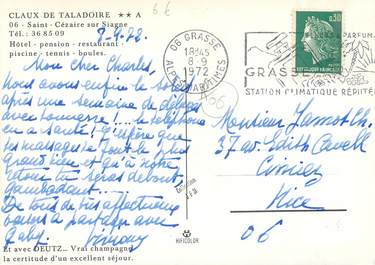 CLAUX DE TALADOIRE ★★ A
06 - Saint - Cézaire sur Siagne
Tél.: 36 85 09
Hôtel - pension - restaurant -
piscine - tennis - boules.
6€
8.9.72
Mon cher Charles,
Nous avons enfin le soleil
après une semaine de déluge
avec tonnerre!... le téléphone
en a sauté! J'espère que
tes massages te font le plus
grand bien et qu'à notre
retour tu seras debout,
gambadant...
De tous de bis affectueux
à partager avec
Gaby.
Et avec DEUTZ... Vrai champagne
la certitude d'un excellent séjour.
06 GRASSE
18H45
8-9
1972
ALPES MARITIMES
0,30
GRASSE
STATION CLIMATIQUE RÉPUTÉE
06
Monsieur Ch.
37 av. Edith Cavell
Cimiez
Nice
06
HIFICOLOR